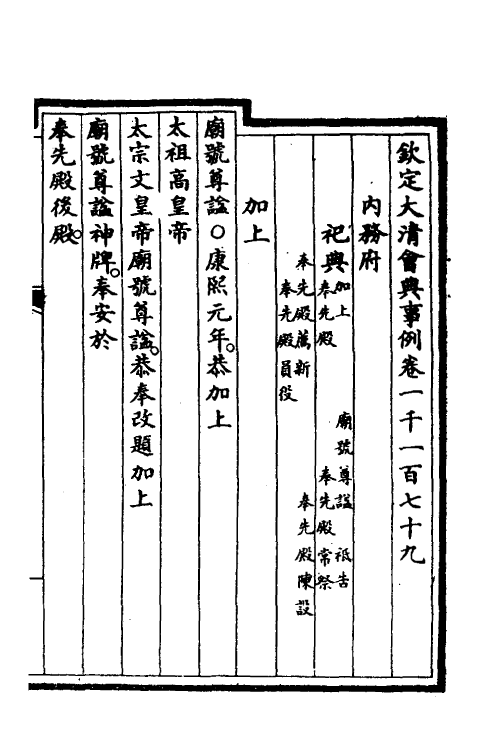 欽定大清會典事例卷一千一百七十九
內務府
祀典 加上 廟號尊諡 祗告
奉先殿 奉先殿常祭
奉先殿薦新 奉先殿陳設
奉先殿員役
加上
廟號尊諡○康熙元年。恭加上
太祖高皇帝
太宗文皇帝廟號尊諡。恭奉改題加上
廟號尊諡神牌。奉安於
奉先殿後殿。